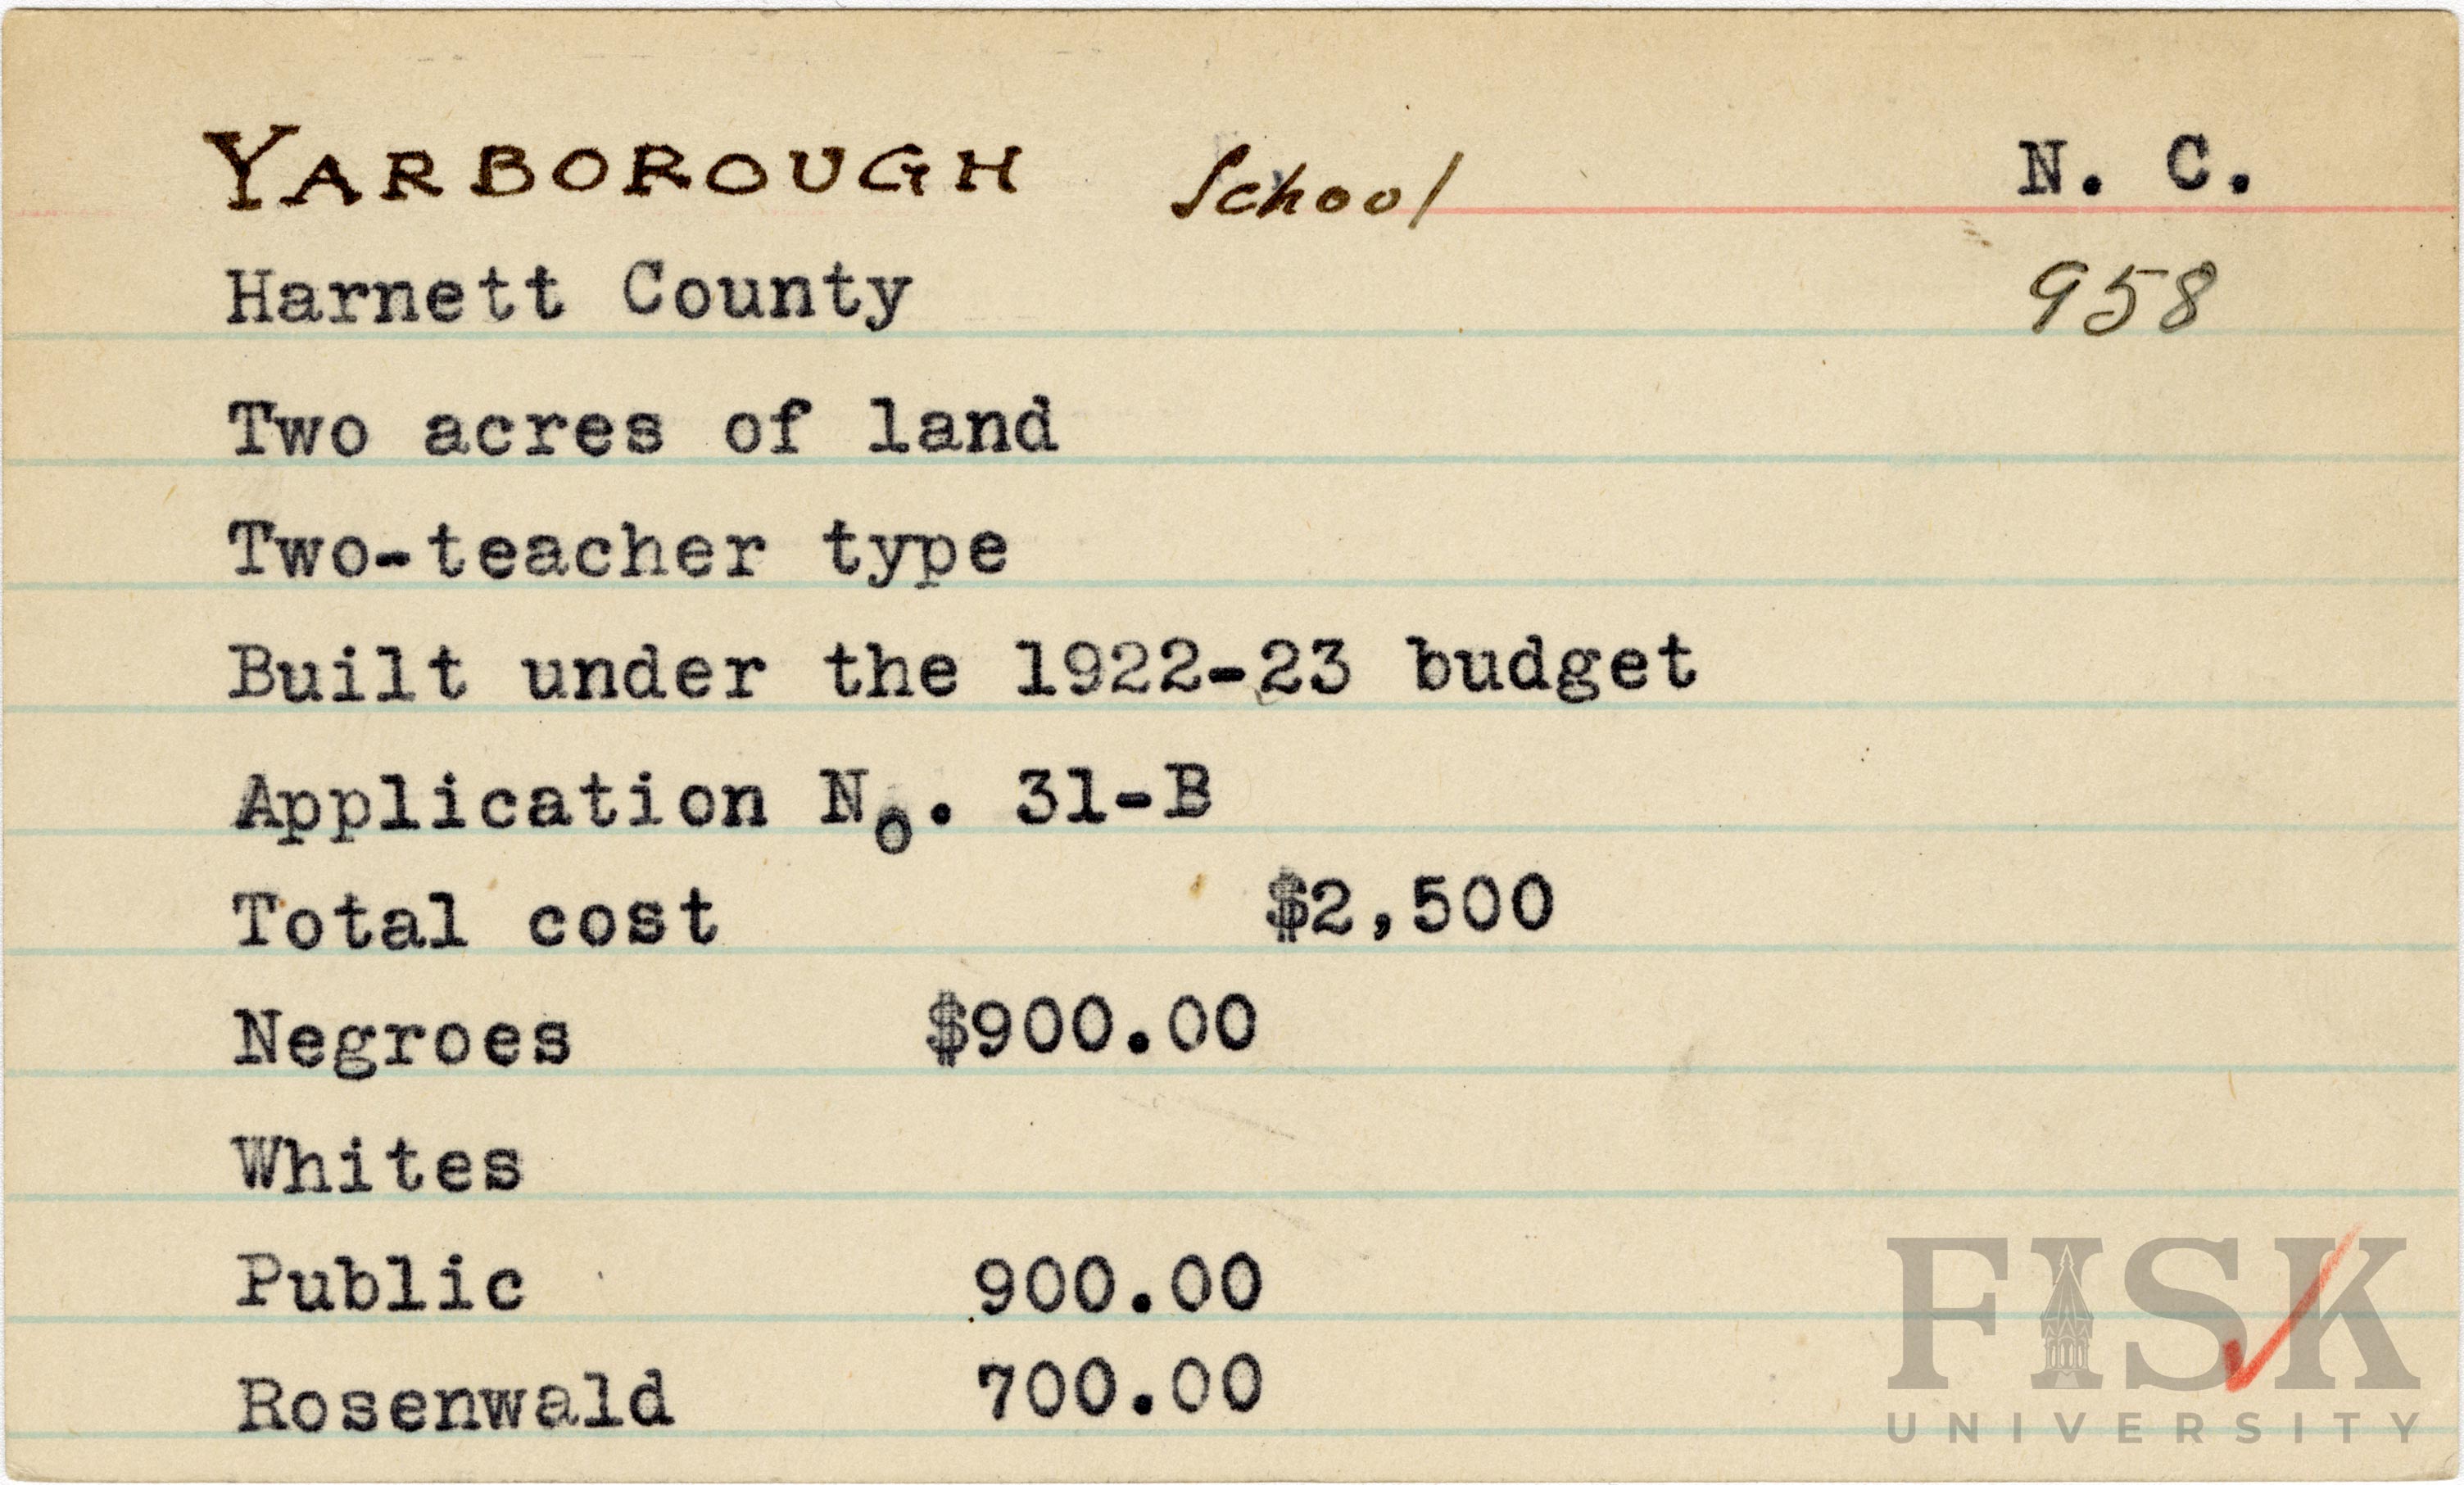 YARBOROUGH School N. C.
Harnett County 958
Two acres of land
Two-teacher type
Built under the 1922-23 budget
Application No. 31-B
Total cost $2,500
Negroes $900.00
Whites
Public 900.00
Rosenwald 700.00
FISK
UNIVERSITY